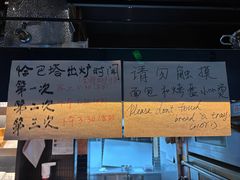 恰巴塔出炉时间
第一次
第二次
第三次 下午3:30
请勿触摸
面包和烤盘小心烫
Please don't touch
bread & tray